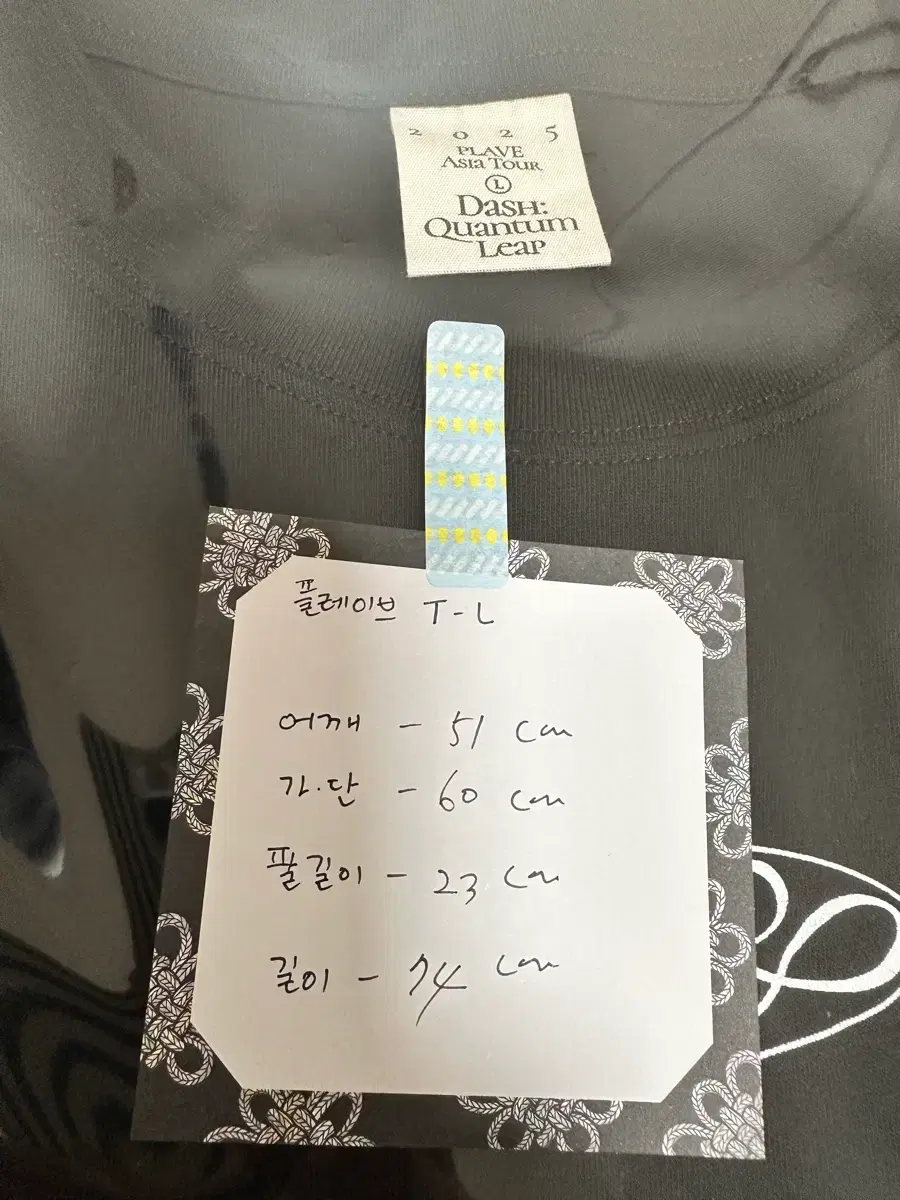 2 0 2 5
PLAVE
Asia Tour
L
Dash:
Quantum
Leap
플레이브 T-L
어깨 - 51 cm
가.단 - 60 cm
팔길이 - 23 cm
길이 - 74 cm